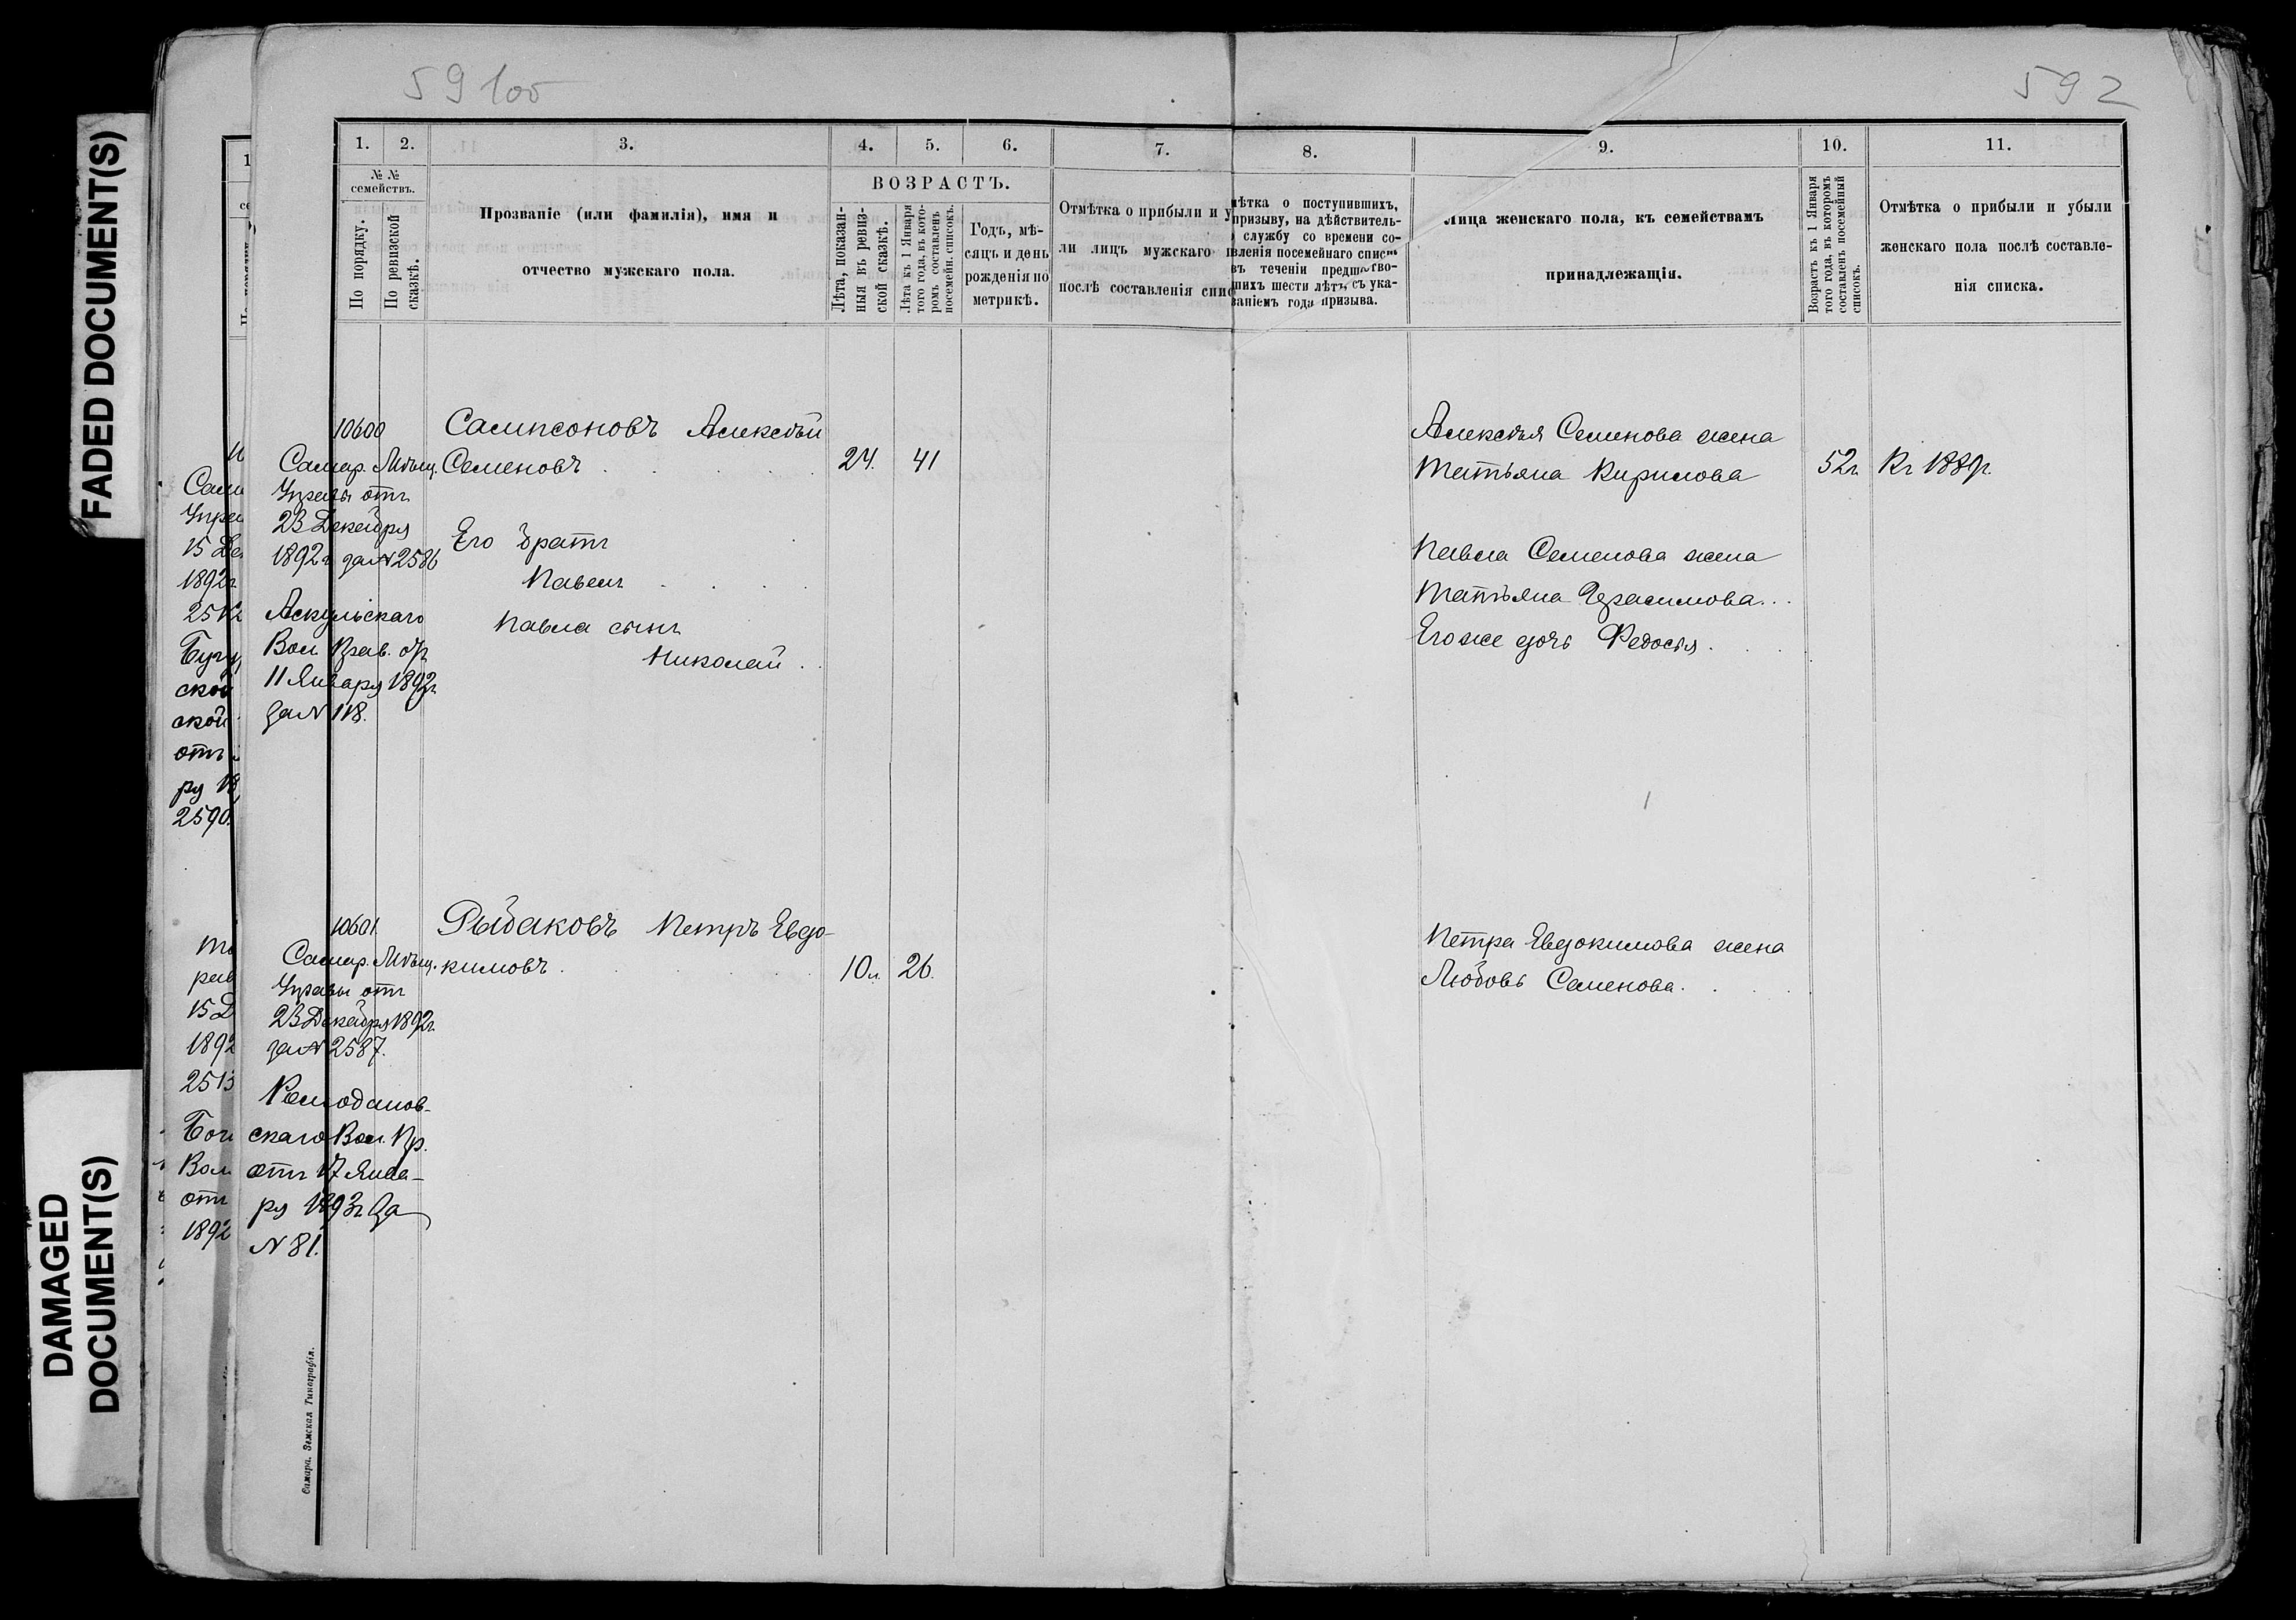 59 100
592
FADED DOCUMENT(S)
DAMAGED
DOCUMENT(S)
1. 2. 3. 4. 5. 6. 7. 8. 9. 10. 11.
№ №
семействъ.
По порядку.
По ревизской
сказкѣ.
Прозваніе (или фамилія), имя и
отчество мужскаго пола.
ВОЗРАСТЪ.
Лѣта, показан-
ныя въ ревиз-
ской сказкѣ.
Лѣта къ 1 Января
того года, въ кото-
ромъ составленъ
посемейн. списокъ.
Годъ, мѣ-
сяцъ и день
рожденія по
метрикѣ.
Отмѣтка о прибыли и у
ли лицъ мужскаго п
послѣ составленія спис
мѣтка о поступившихъ,
призыву, на дѣйствитель-
службу со времени со-
вленія посемейнаго списк
въ теченіи предшество-
шихъ шести лѣтъ, съ ука-
заніемъ года призыва.
Лица женскаго пола, къ семействамъ
принадлежащія.
Возрастъ къ 1 Января
того года, въ которомъ
составленъ посемейный
списокъ.
Отмѣтка о прибыли и убыли
женскаго пола послѣ составле-
нія списка.
10600
Самар. Мѣщ.
Управы отъ
23 Декабря
1892 г за № 2586
Аскульскаго
Вол Прав. отъ
11 Января 1892г.
За № 118.
Сампсоновъ Алексѣй
Семеновъ . . . 24. 41
Его братъ
Павелъ . . .
Павла сынъ
Николай . .
Алексѣя Семенова жена
Татьяна Кирилова 52г. Къ 1889г.
Павла Семенова жена
Татьяна Герасимова . .
Его же дочь Федосья . . .
10601.
Самар. Мѣщ.
Управы отъ
23 Декабря 1892г.
за № 2587.
скаго Вол. Пр.
отъ 17 Янва-
ря 1893г За
№ 81.
Рыбаковъ Петръ Евдо-
кимовъ . . . 10л. 26.
Петра Евдокимова жена
Любовь Семенова . . .
Самара. Земская Типографія.
15 Де
1892г.
2512
ской
ской
отъ
ря 18
2590.
15 Д
1892
2513
Вол
отъ
1892